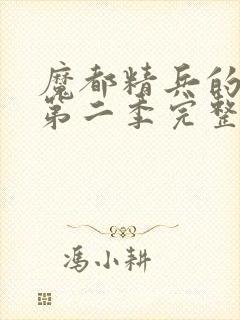 魔都精兵的
第二季完整
冯小耕